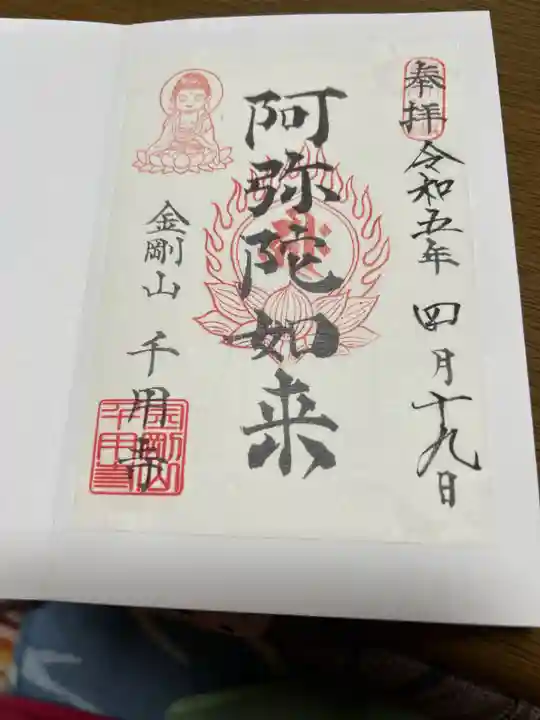 奉拝
令和五年 四月十九日
阿弥陀如来
金剛山 千用寺
金剛山
千用寺